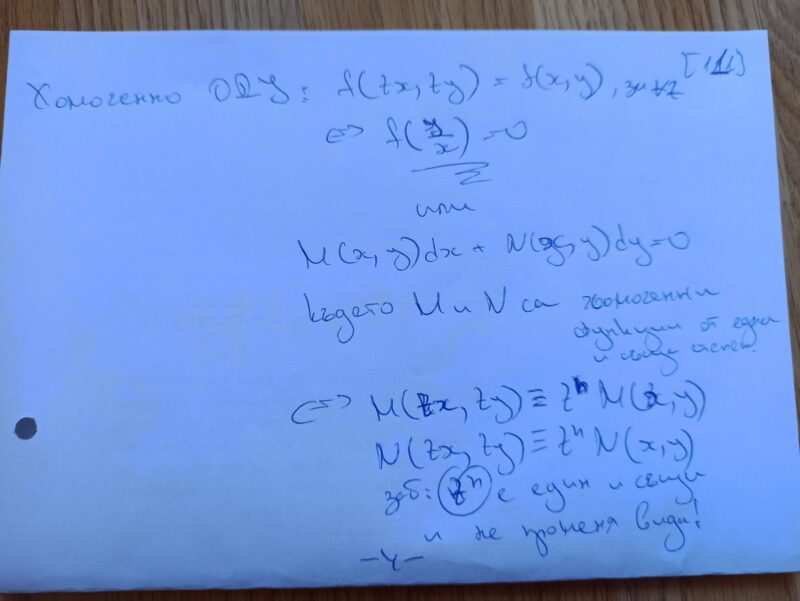 [111]
Хомогенно ОДУ: f(tx, ty) = f(x, y), за ∀t
<=> f(y/x) = 0
или
M(x, y)dx + N(x, y)dy = 0
където M и N са хомогенни
функции от една
и съща степ.
<=> M(tx, ty) ≡ t^n M(x, y)
N(tx, ty) ≡ t^n N(x, y)
заб: t^n е един и същи
и не променя вида!
-4-